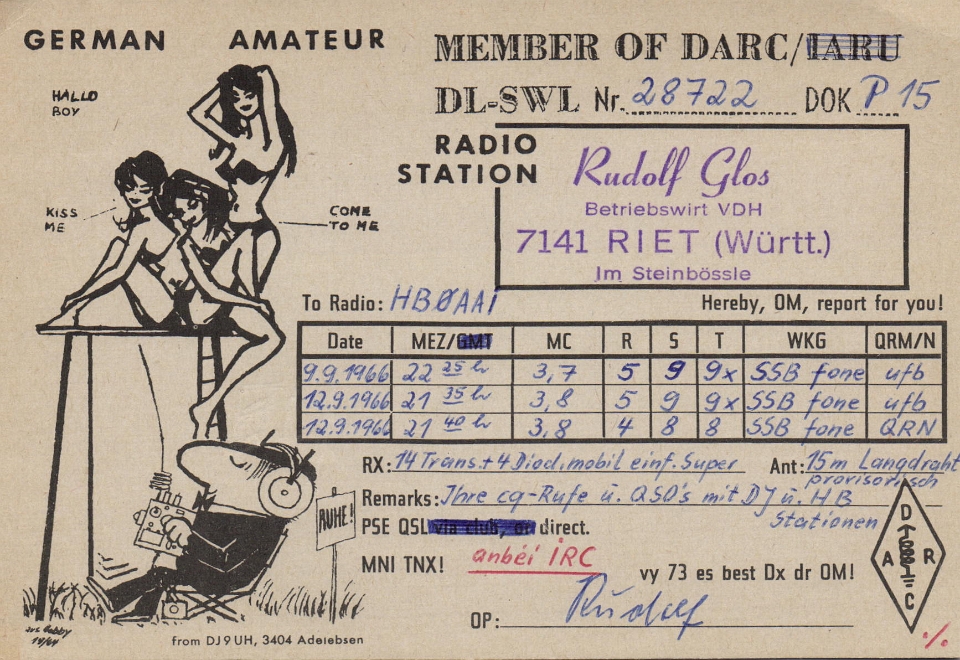 GERMAN AMATEUR
MEMBER OF DARC/IARU
HALLO
BOY
DL-SWL Nr. 28722 DOK P 15
RADIO
STATION
Rudolf Glos
Betriebswirt VDH
7141 RIET (Württ.)
Im Steinbössle
KISS
ME
COME
TO ME
To Radio: HBØAAI
Hereby, OM, report for you!
Date MEZ/GMT MC R S T WKG QRM/N
9.9.1966 22 25 hr 3,7 5 9 9x SSB fone ufb
12.9.1966 21 35 hr 3,8 5 9 9x SSB fone ufb
12.9.1966 21 40 hr 3,8 4 8 8 SSB fone QRN
RX: 14 Trans.+4 Diod, mobil einf. Super Ant: 15m Langdraht
provisorisch
Remarks: Ihre cq-Rufe u. QSO's mit DJ u. HB
Stationen
RUHE!
PSE QSL via club, or direct.
MNI TNX! anbéi IRC
vy 73 es best Dx dr OM!
OP: Rudolf
D
A R
C
from DJ9UH, 3404 Adelebsen
%